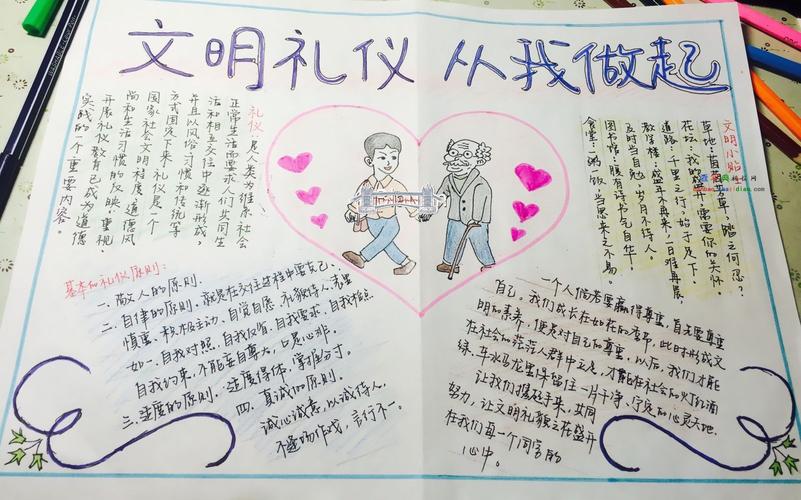 文明礼仪 从我做起
礼仪:是人类为维系社会
正常生活而要求人们共同生
活和相互交往中逐渐形成,
并且以风俗、习惯和传统等
方式固定下来。礼仪是一个
国家社会文明程度、道德风
尚和生活习惯的反映。重视、
开展礼仪教育已成为道德
实践的一个重要内容。
文明小贴
草地:茵茵芳草,踏之何忍?
花坛:我的盛开需要你的关怀。
道路:千里之行,始于足下。
教学楼:盛年不再来,一日难再晨,
及时当自勉,岁月不待人。
图书馆:腹有诗书气自华。
食堂:一粥一饭,当思来之不易。
基本的礼仪原则:
一.敬人的原则.
二.自律的原则,就是在交往过程中要克己、
慎重、积极主动、自觉自愿、礼貌待人、表里
如一、自我对照、自我反省、自我要求、自我检点
自我约束、不能妄自尊大、口是心非。
三.适度的原则,适度得体,掌握分寸。
四.真诚的原则,
诚心诚意,以诚待人,
不逢场作戏,言行不一。
一个人倘若要赢得尊重,首先要尊重
自己。我们成长在如花的季节,此时形成文
明的素养,便是对自己的尊重,以后,我们才能
在社会的茫茫人群中立足,才能在社会的灯红酒
绿、车水马龙里保留住一片干净、宁定的心灵天地。
让我们携起手来,共同
努力,让文明礼貌之花盛开
在我们每一个同学的
心中。